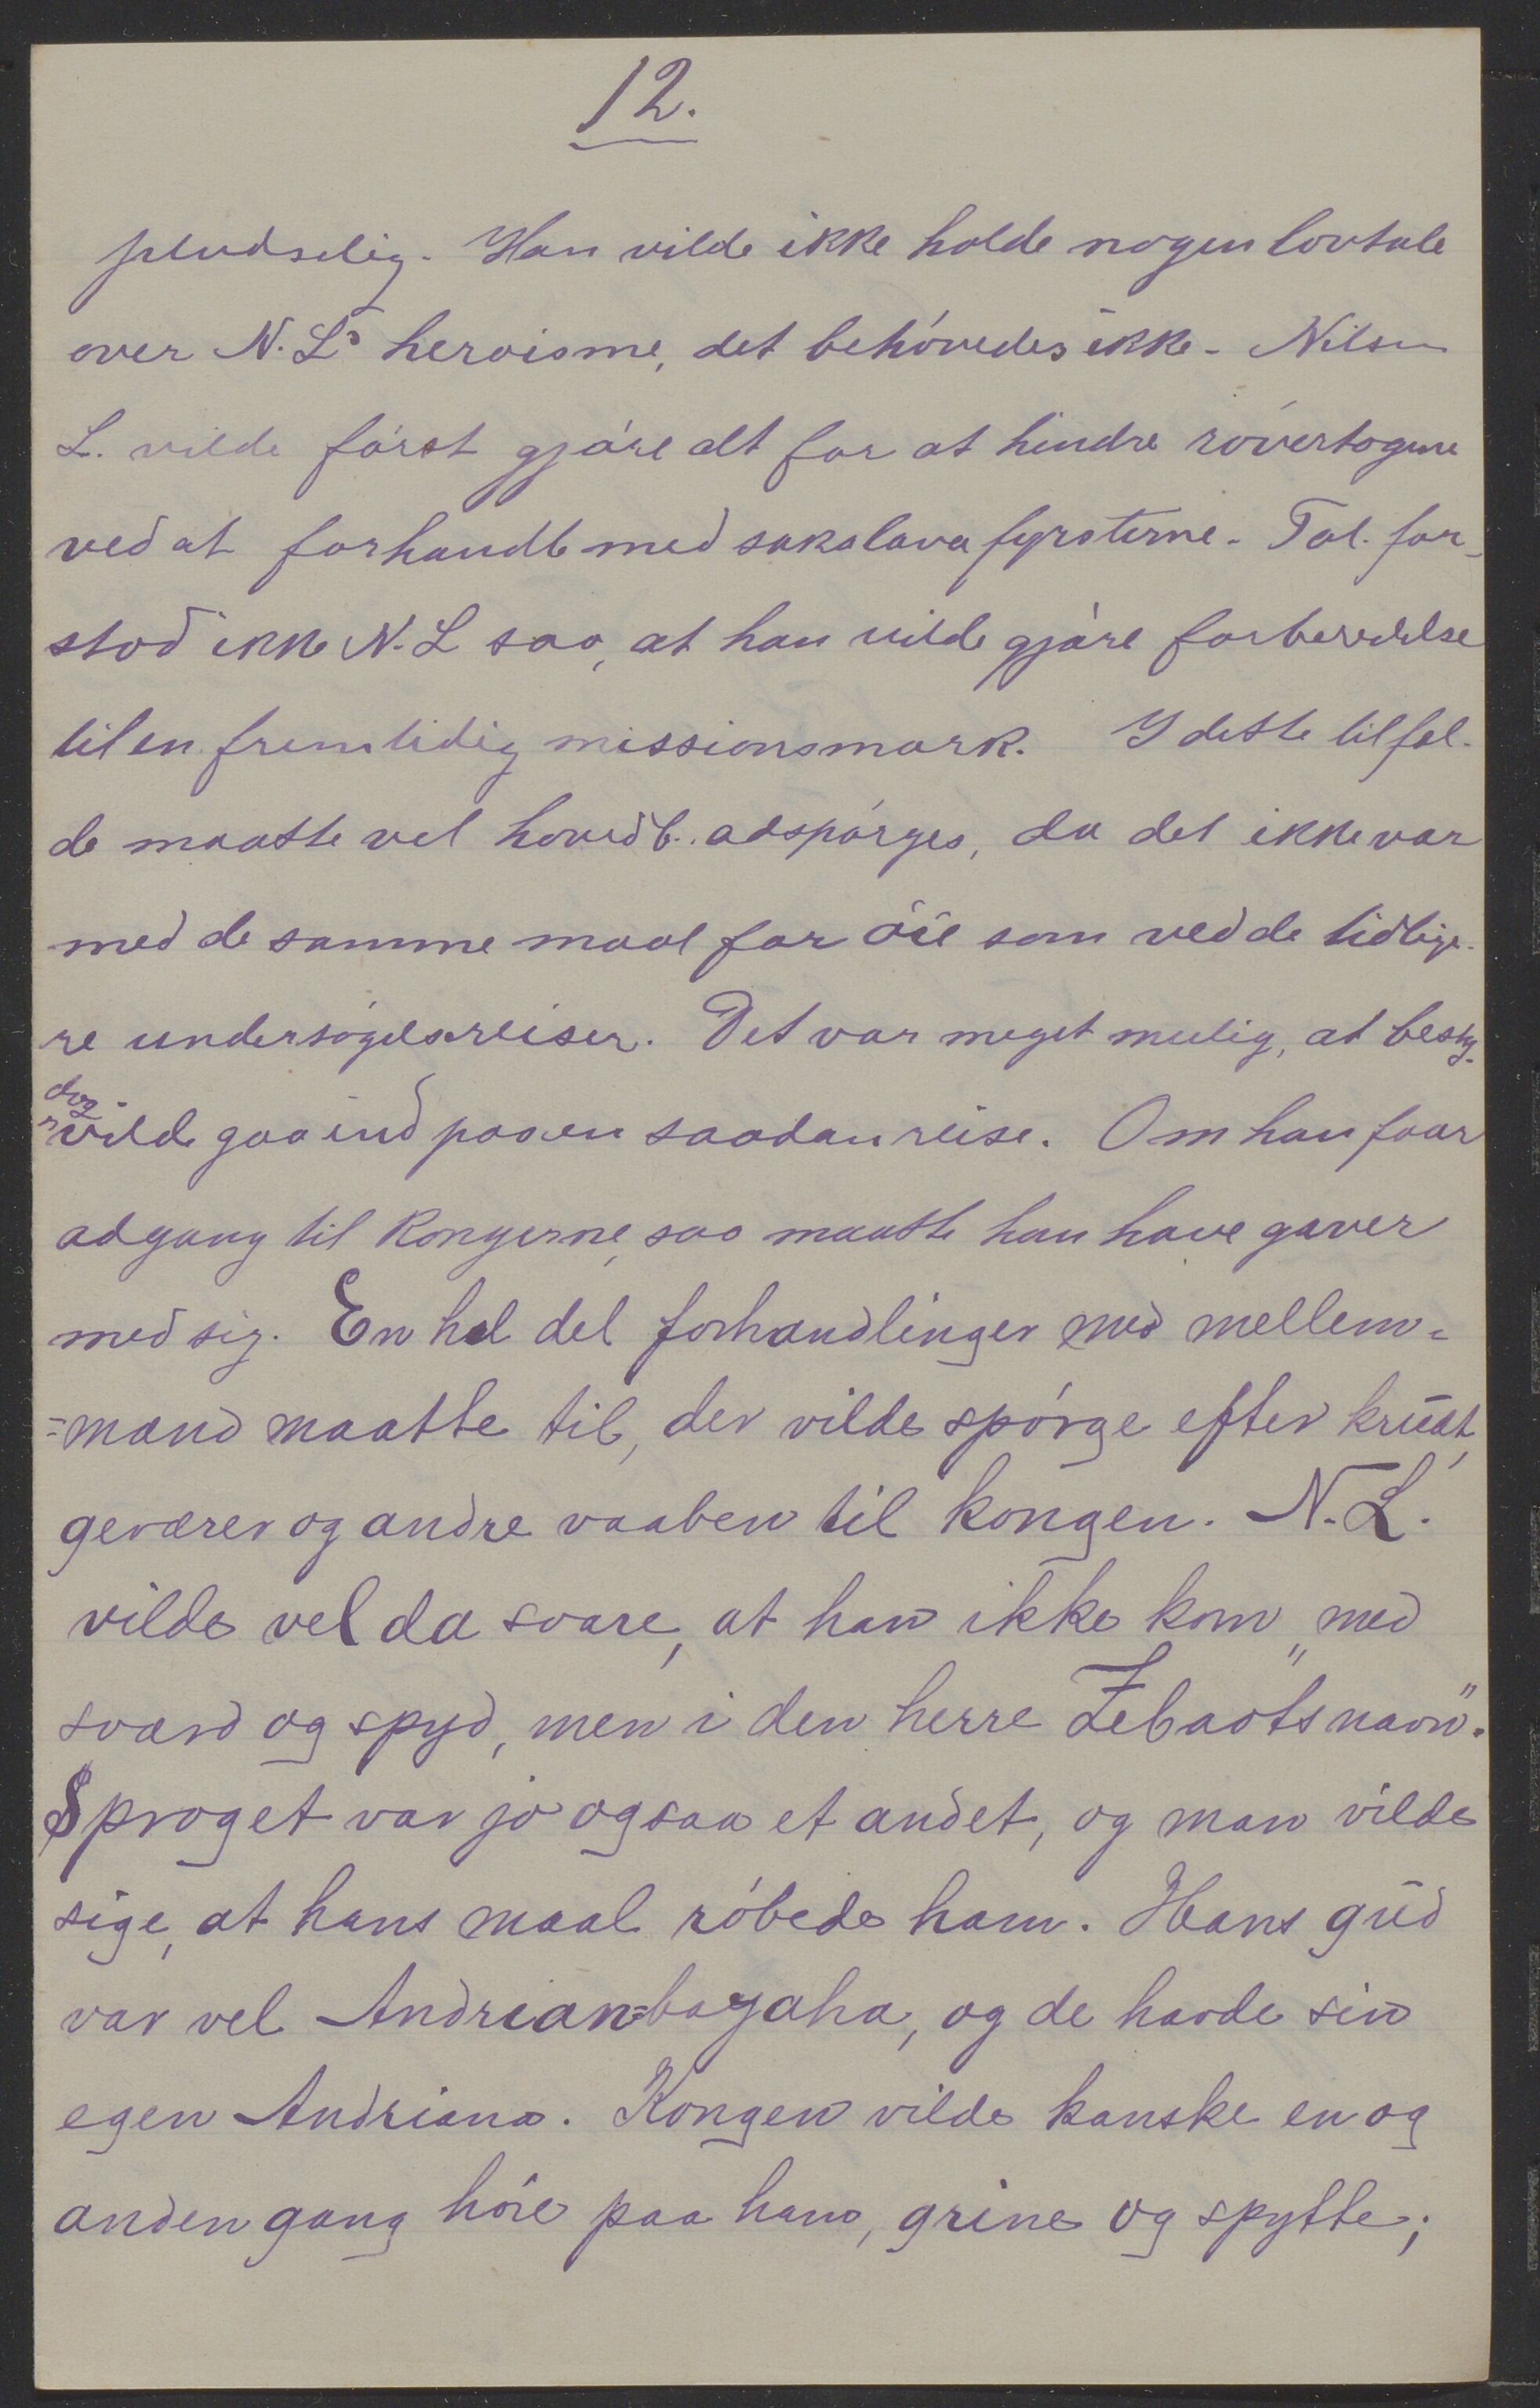 12.
pludselig. Han vilde ikke holde nogen lovtale
over N. L's heroisme, det behóvedes ikke. Nilsen
L. vilde fórst gjóre alt for at hindre róvertogene
ved at forhandle med sakalavafyrsterne. Tal. for-
stod ikke N. L saa, at han vilde gjóre forberedelse
til en fremtidig missionsmark. I dette tilfæl-
de maatte vel hovedb. adspórges, da det ikke var
med de samme maal for óie som ved de tidlige-
re undersógelsesreiser. Det var meget mulig, at besty-
dog
r vilde gaa ind paa en saadan reise. Om han faar
adgang til kongerne, saa maatte han have gaver
med sig. En hel del forhandlinger med mellem=
=mænd maatte til, der vilde spórge efter krudt,
geværer og andre vaaben til kongen. N. L.
vilde vel da svare, at han ikke kom „med
sværd og spyd, men i den herre Zebaots navn".
Sproget var jo ogsaa et andet, og man vilde
sige, at hans maal róbede ham. Hans gud
var vel Andrian=bagaha, og de havde sin
egen Andriana. Kongen vilde kanske en og
anden gang hóre paa ham, grine og spytte;